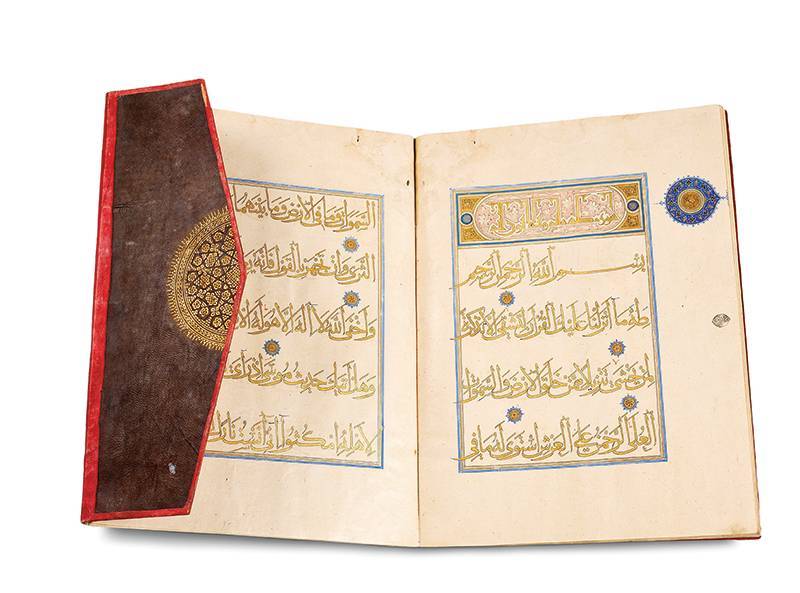 بِسْمِ اللَّهِ الرَّحْمٰنِ الرَّحِيمِ
طه مَا أَنْزَلْنَا عَلَيْكَ الْقُرْآنَ لِتَشْقَى إِلَّا تَذْكِرَةً
لِمَنْ يَخْشَى تَنْزِيلًا مِمَّنْ خَلَقَ الْأَرْضَ وَالسَّمٰوَاتِ
الْعُلَى الرَّحْمٰنُ عَلَى الْعَرْشِ اسْتَوَى لَهُ مَا فِي
السَّمٰوَاتِ وَمَا فِي الْأَرْضِ وَمَا بَيْنَهُمَا
الثَّرَى وَإِنْ تَجْهَرْ بِالْقَوْلِ فَإِنَّهُ
وَأَخْفَى اللَّهُ لَا إِلٰهَ إِلَّا هُوَ لَهُ
وَهَلْ أَتٰكَ حَدِيثُ مُوسَى إِذْ رَأَى
لِأَهْلِهِ امْكُثُوا إِنِّي آنَسْتُ نَارًا